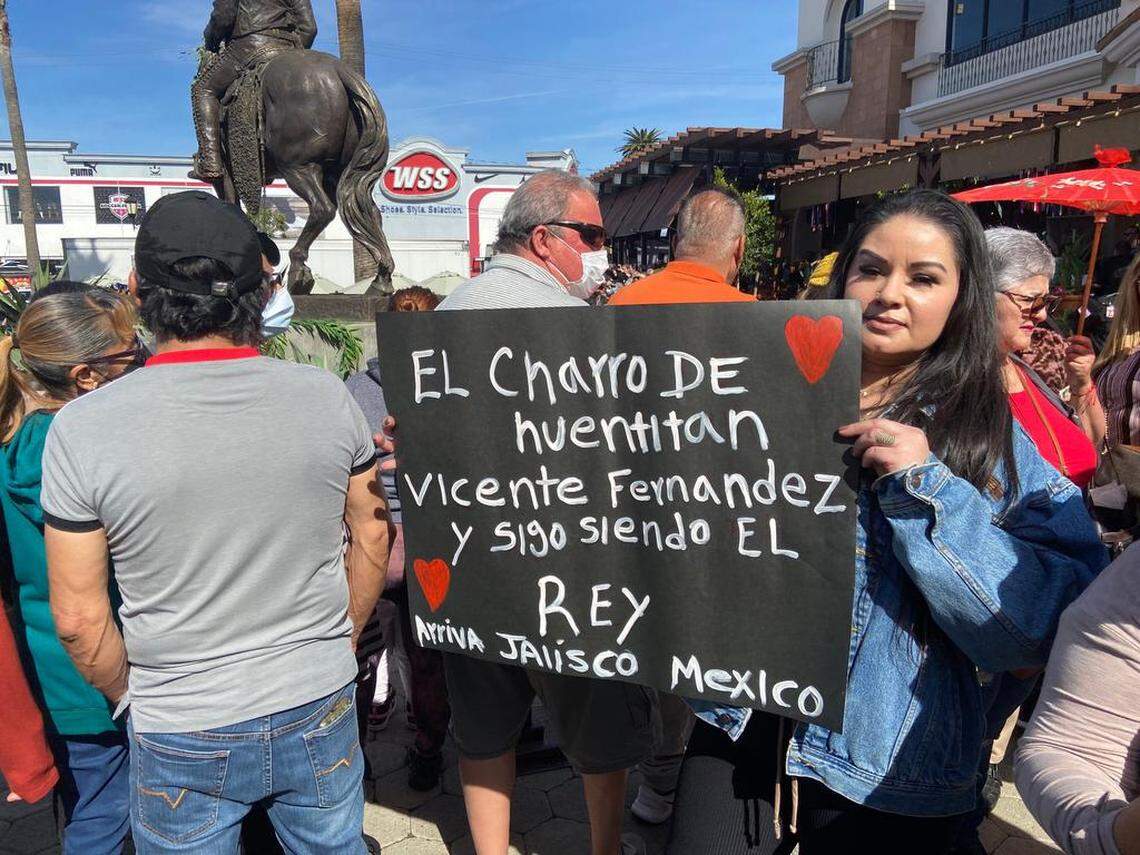 PUMA
WSS
Shoes. Style. Selection.
EL Charro DE
huentitan
Vicente Fernandez
y sigo siendo EL
REY
Arriva JALisco Mexico